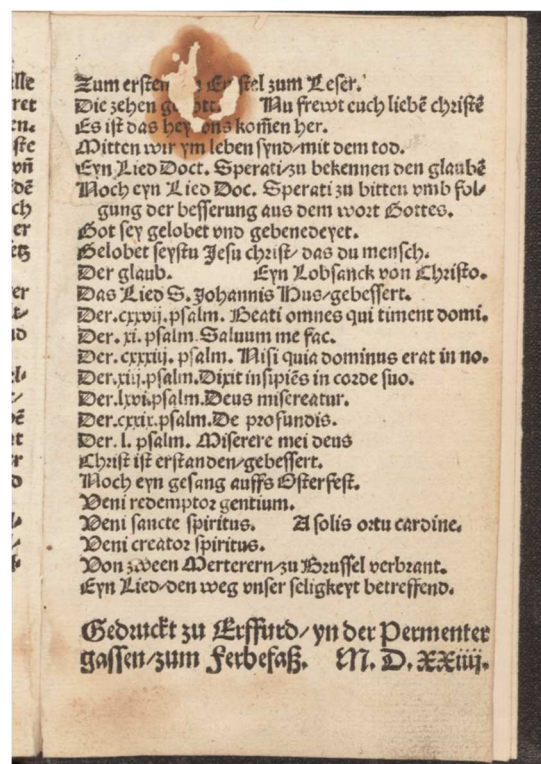 lle
ret
en.
ste
vñ
dē
ch
er
etz
er
nd
el-
vē
nt
er
Zum ersten stel zum Leser.
Die zehen Nu frewt euch liebē christē
Es ist das hey ons kom̃en her.
Mitten wir ym leben synd/mit dem tod.
Eyn Lied Doct. Sperati/zu bekennen den glaubē
Noch eyn Lied Doc. Sperati zu bitten vmb fol-
gung der besserung aus dem wort Gottes.
Got sey gelobet vnd gebenedeyet.
Gelobet seystu Jesu christ/ das du mensch.
Der glaub. Eyn Lobsanck von Christo.
Das Lied S. Johannis Hus/gebessert.
Der.cxxvij.psalm. Beati omnes qui timent domi.
Der. xi. psalm. Saluum me fac.
Der. cxxiij. psalm. Nisi quia dominus erat in no.
Der.xiij.psalm.Dixit insipiēs in corde suo.
Der.lxvi.psalm.Deus misereatur.
Der.cxxix.psalm.De profundis.
Der. l. psalm. Miserere mei deus
Christ ist erstanden/gebessert.
Noch eyn gesang auffs Osterfest.
Veni redemptor gentium.
Veni sancte spiritus. A solis ortu cardine.
Veni creator spiritus.
Von zween Merterern/zu Brussel verbrant.
Eyn Lied/den weg vnser seligkeyt betreffend.
Gedruckt zu Erffurd/ yn der Permenter
gassen/zum Ferbefaß. M. D. XXiiij.